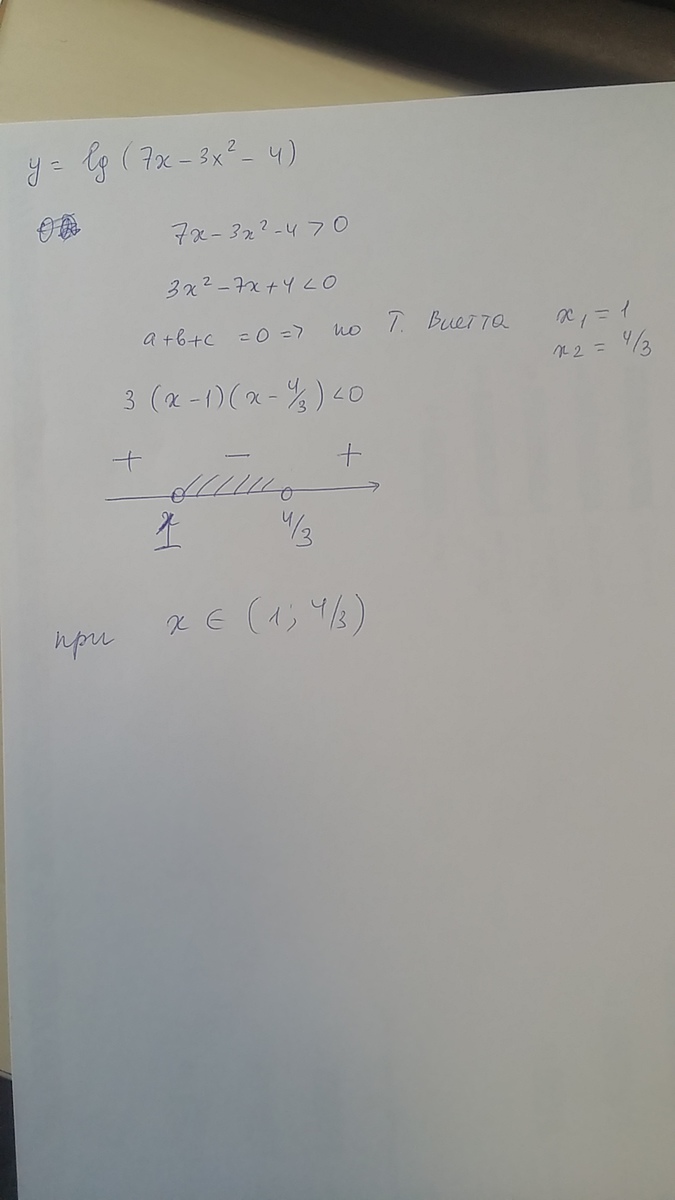 y = lg (7x - 3x² - 4)
7x - 3x² - 4 > 0
3x² - 7x + 4 < 0
a + b + c = 0 => по Т. Виетта x₁ = 1
x₂ = 4/3
3 (x - 1)(x - 4/3) < 0
+ - +
1 4/3
при x ∈ (1; 4/3)